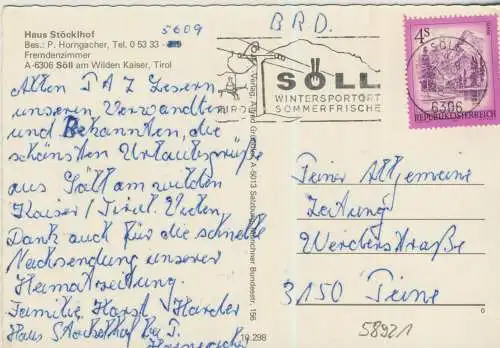 Haus Stöcklhof
Bes.: P. Horngacher, Tel. 0 53 33 -
Fremdenzimmer
A-6306 Söll am Wilden Kaiser, Tirol
5609
BRD.
SÖLL
WINTERSPORTORT
SOMMERFRISCHE
4S
SÖLL
6306
REPUBLIK ÖSTERREICH
Allen PAZ Lesern
unseren Verwandten
und Bekannten, die
schönsten Urlaubsgrüße
aus Söll am wilden
Kaiser / Tirol. Vielen
Dank auch für die schnelle
Nachsendung unserer
Heimatzeitung.
Familie Horst Harder
Haus Stöcklhof bei P.
A-5013 Salzburg, Münchner Bundesstr. 156
10.298
Peiner Allgemeine
Zeitung
Werderstraße
3150 Peine
58921